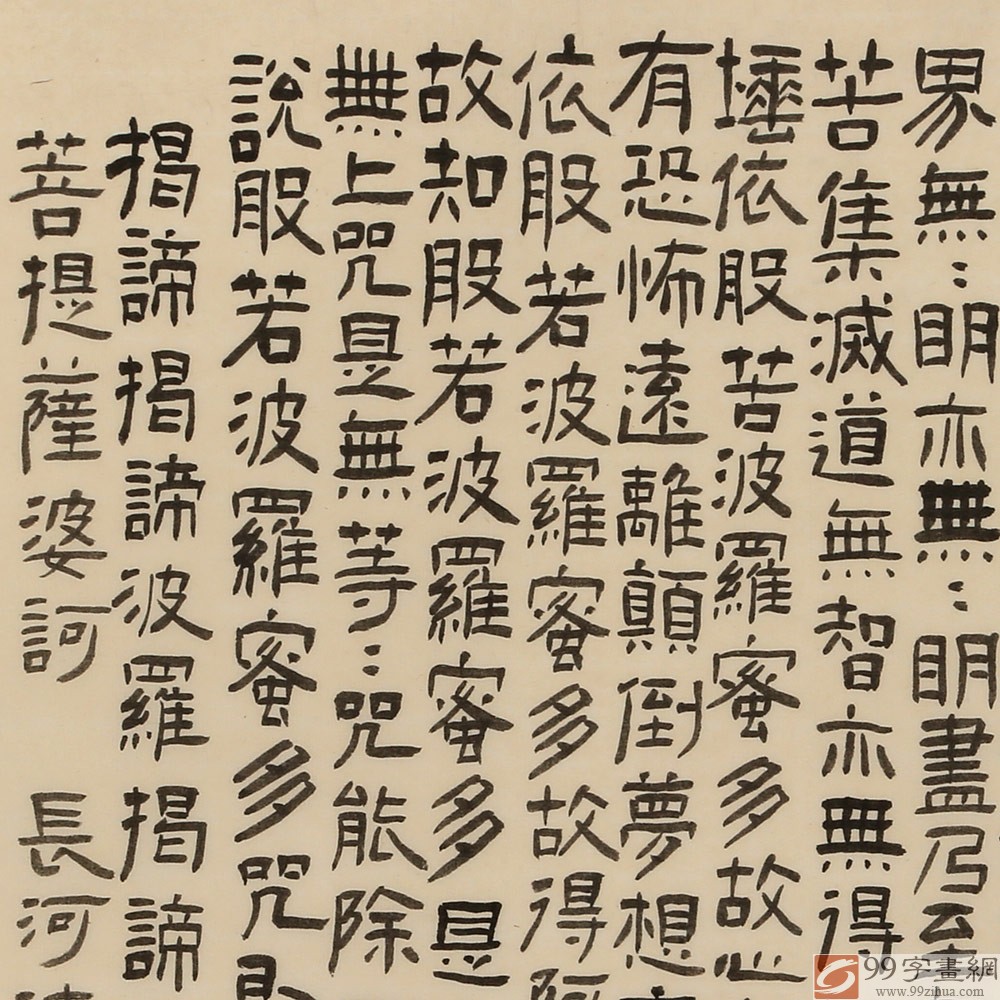 界無〻明亦無〻明盡乃至
苦集滅道無智亦無得
埵依般苦波羅蜜多故心
有恐怖遠離顛倒夢想
依般若波羅蜜多故得阿
故知般若波羅蜜多是
無上咒是無等〻咒能除
說般若波羅蜜多咒即
揭諦揭諦波羅揭諦
菩提薩婆訶 長河
99字畫網
www.99zihua.com